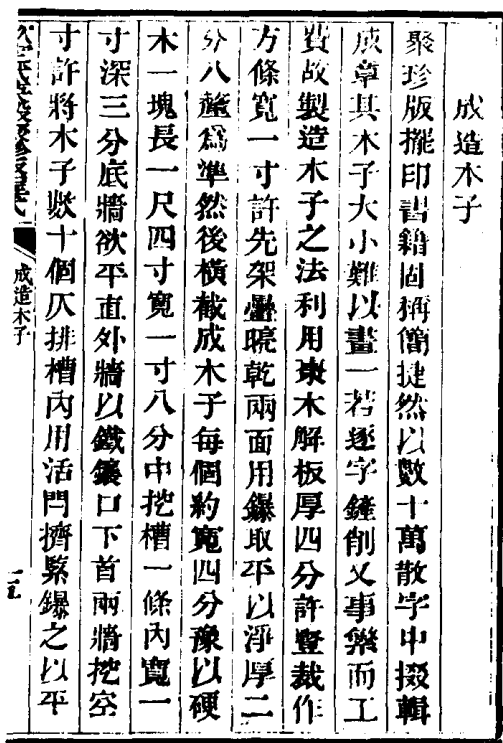 成造木子
聚珍版擺印書籍固稱簡捷然以數十萬散字中掇輯
成章其木子大小難以畫一若逐字鏟削又事繁而工
費故製造木子之法利用棗木解板厚四分許豎裁作
方條寬一寸許先架疊晾乾兩面用鑤取平以淨厚二
分八釐為準然後橫截成木子每個約寬四分豫以硬
木一塊長一尺四寸寬一寸八分中挖槽一條內寬一
寸深三分底牆欲平直外牆以鐵鑲口下首兩牆挖空
寸許將木子數十個仄排槽內用活閂擠緊鑤之以平
成造木子